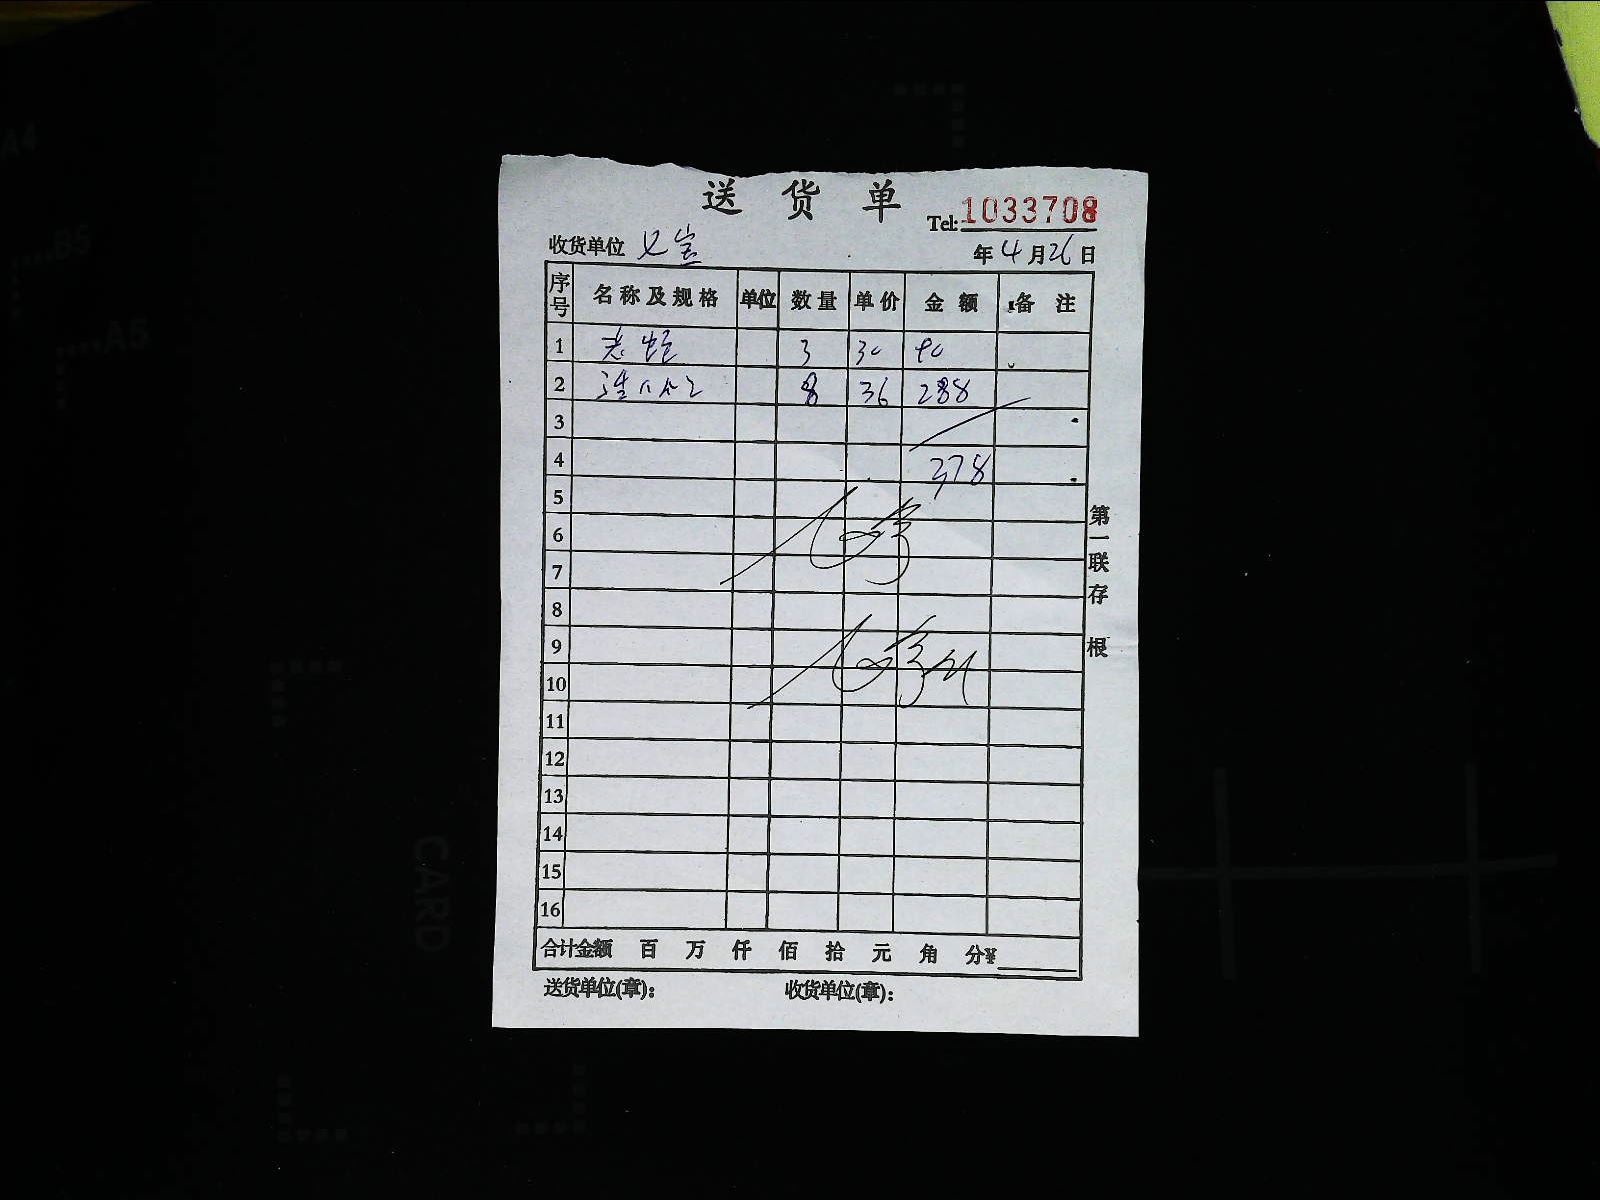 送货单
Tel: 1033708
收货单位 七宝 年4月26日
序号 名称及规格 单位 数量 单价 金额 备注
1 老蛏 3 30 90
2 8 36 288
3
4 378
5
6
7
8
9
10
11
12
13
14
15
16
合计金额 百 万 仟 佰 拾 元 角 分¥
送货单位(章): 收货单位(章):
第一联存根
A4
B5
A5
CARD